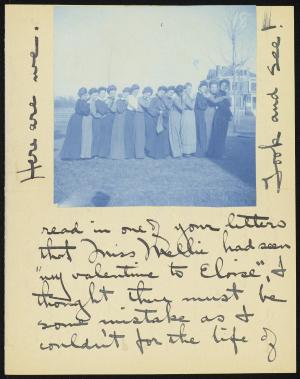 Here are we.
Look and see!
read in one of your letters
that Miss Nellie had seen
"my valentine to Eloise", I
thought they must be
some mistake as I
couldn't for the life of